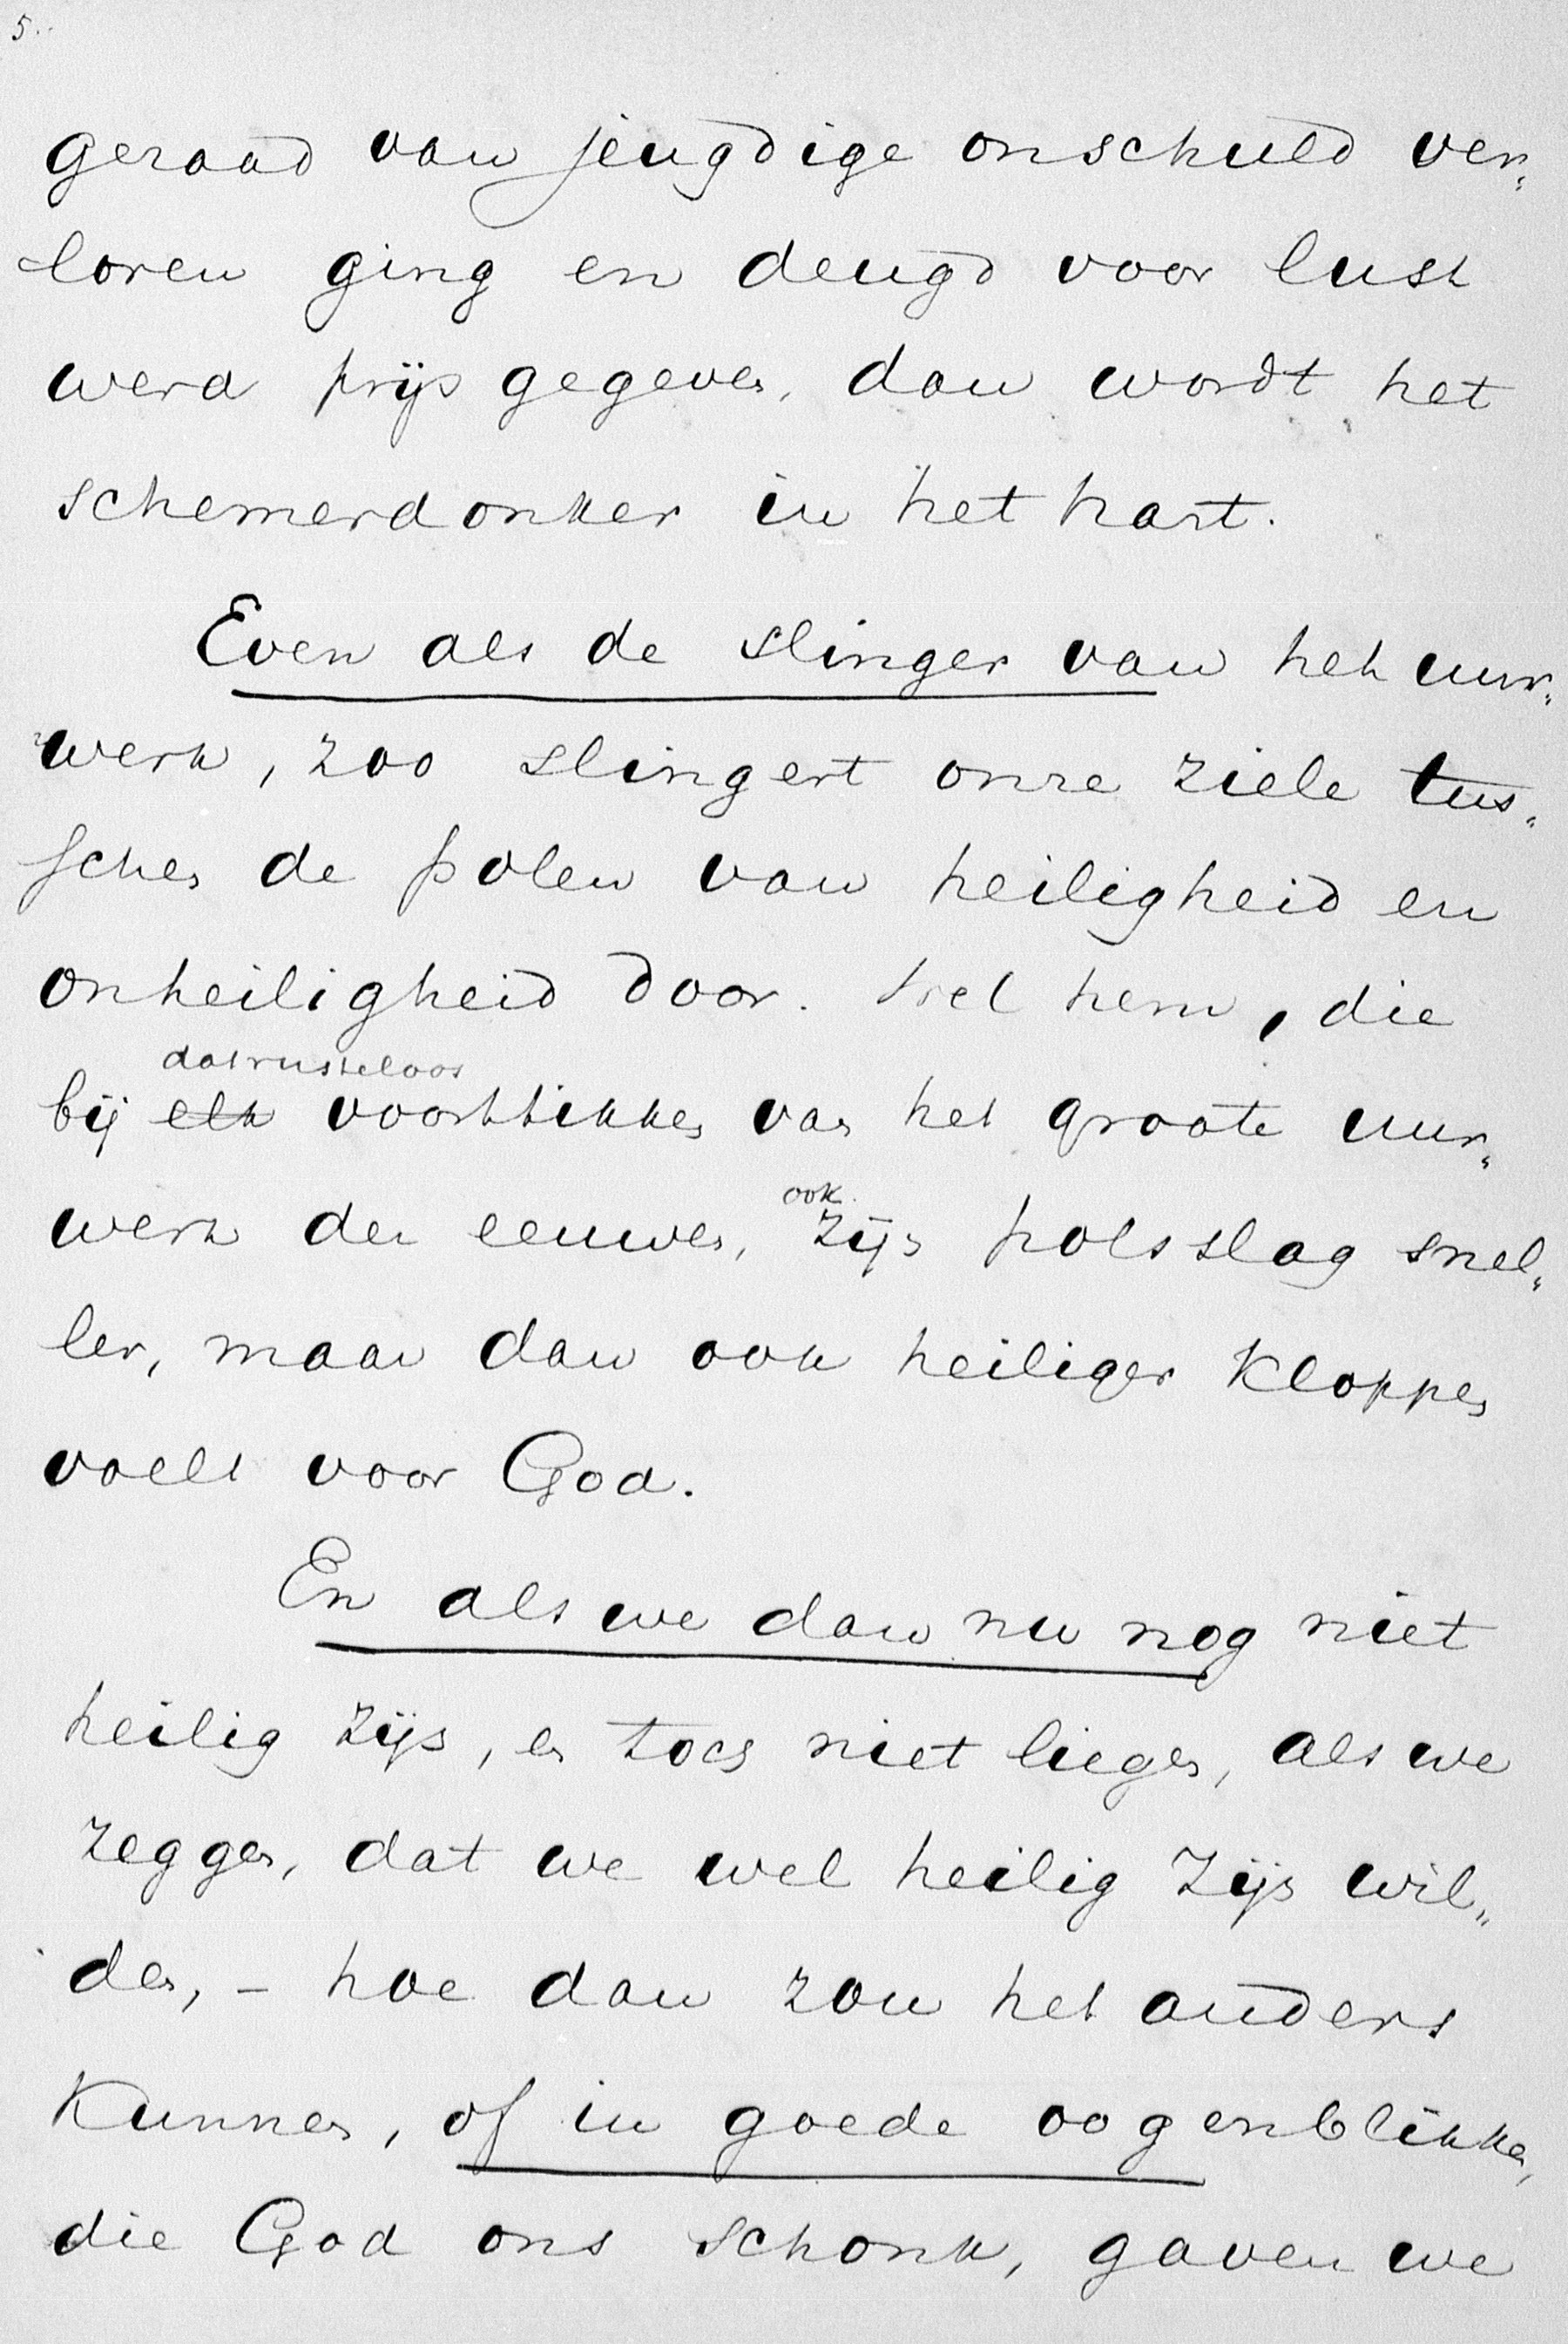 5.
geraad van jeugdige onschuld ver„
loren ging en deugd voor lust
werd prijs gegeven, dan wordt het
schemerdonker in het hart.
Even als de slinger van het uur„
werk, zoo slingert onze ziele tus„
schen de polen van heiligheid en
onheiligheid door. Wel hem, die
dat rusteloos
bij elk voorttikken van het groote uur„
ook
werk der eeuwen, zijn polsslag snel„
ler, maar dan ook heiliger kloppen
voelt voor God.
En als we dan nu nog niet
heilig zijn, en toch niet liegen, als we
zeggen, dat we wel heilig zijn wil„
den, – hoe dan zou het anders
kunnen, of in goede oogenblikken,
die God ons schonk, gaven we